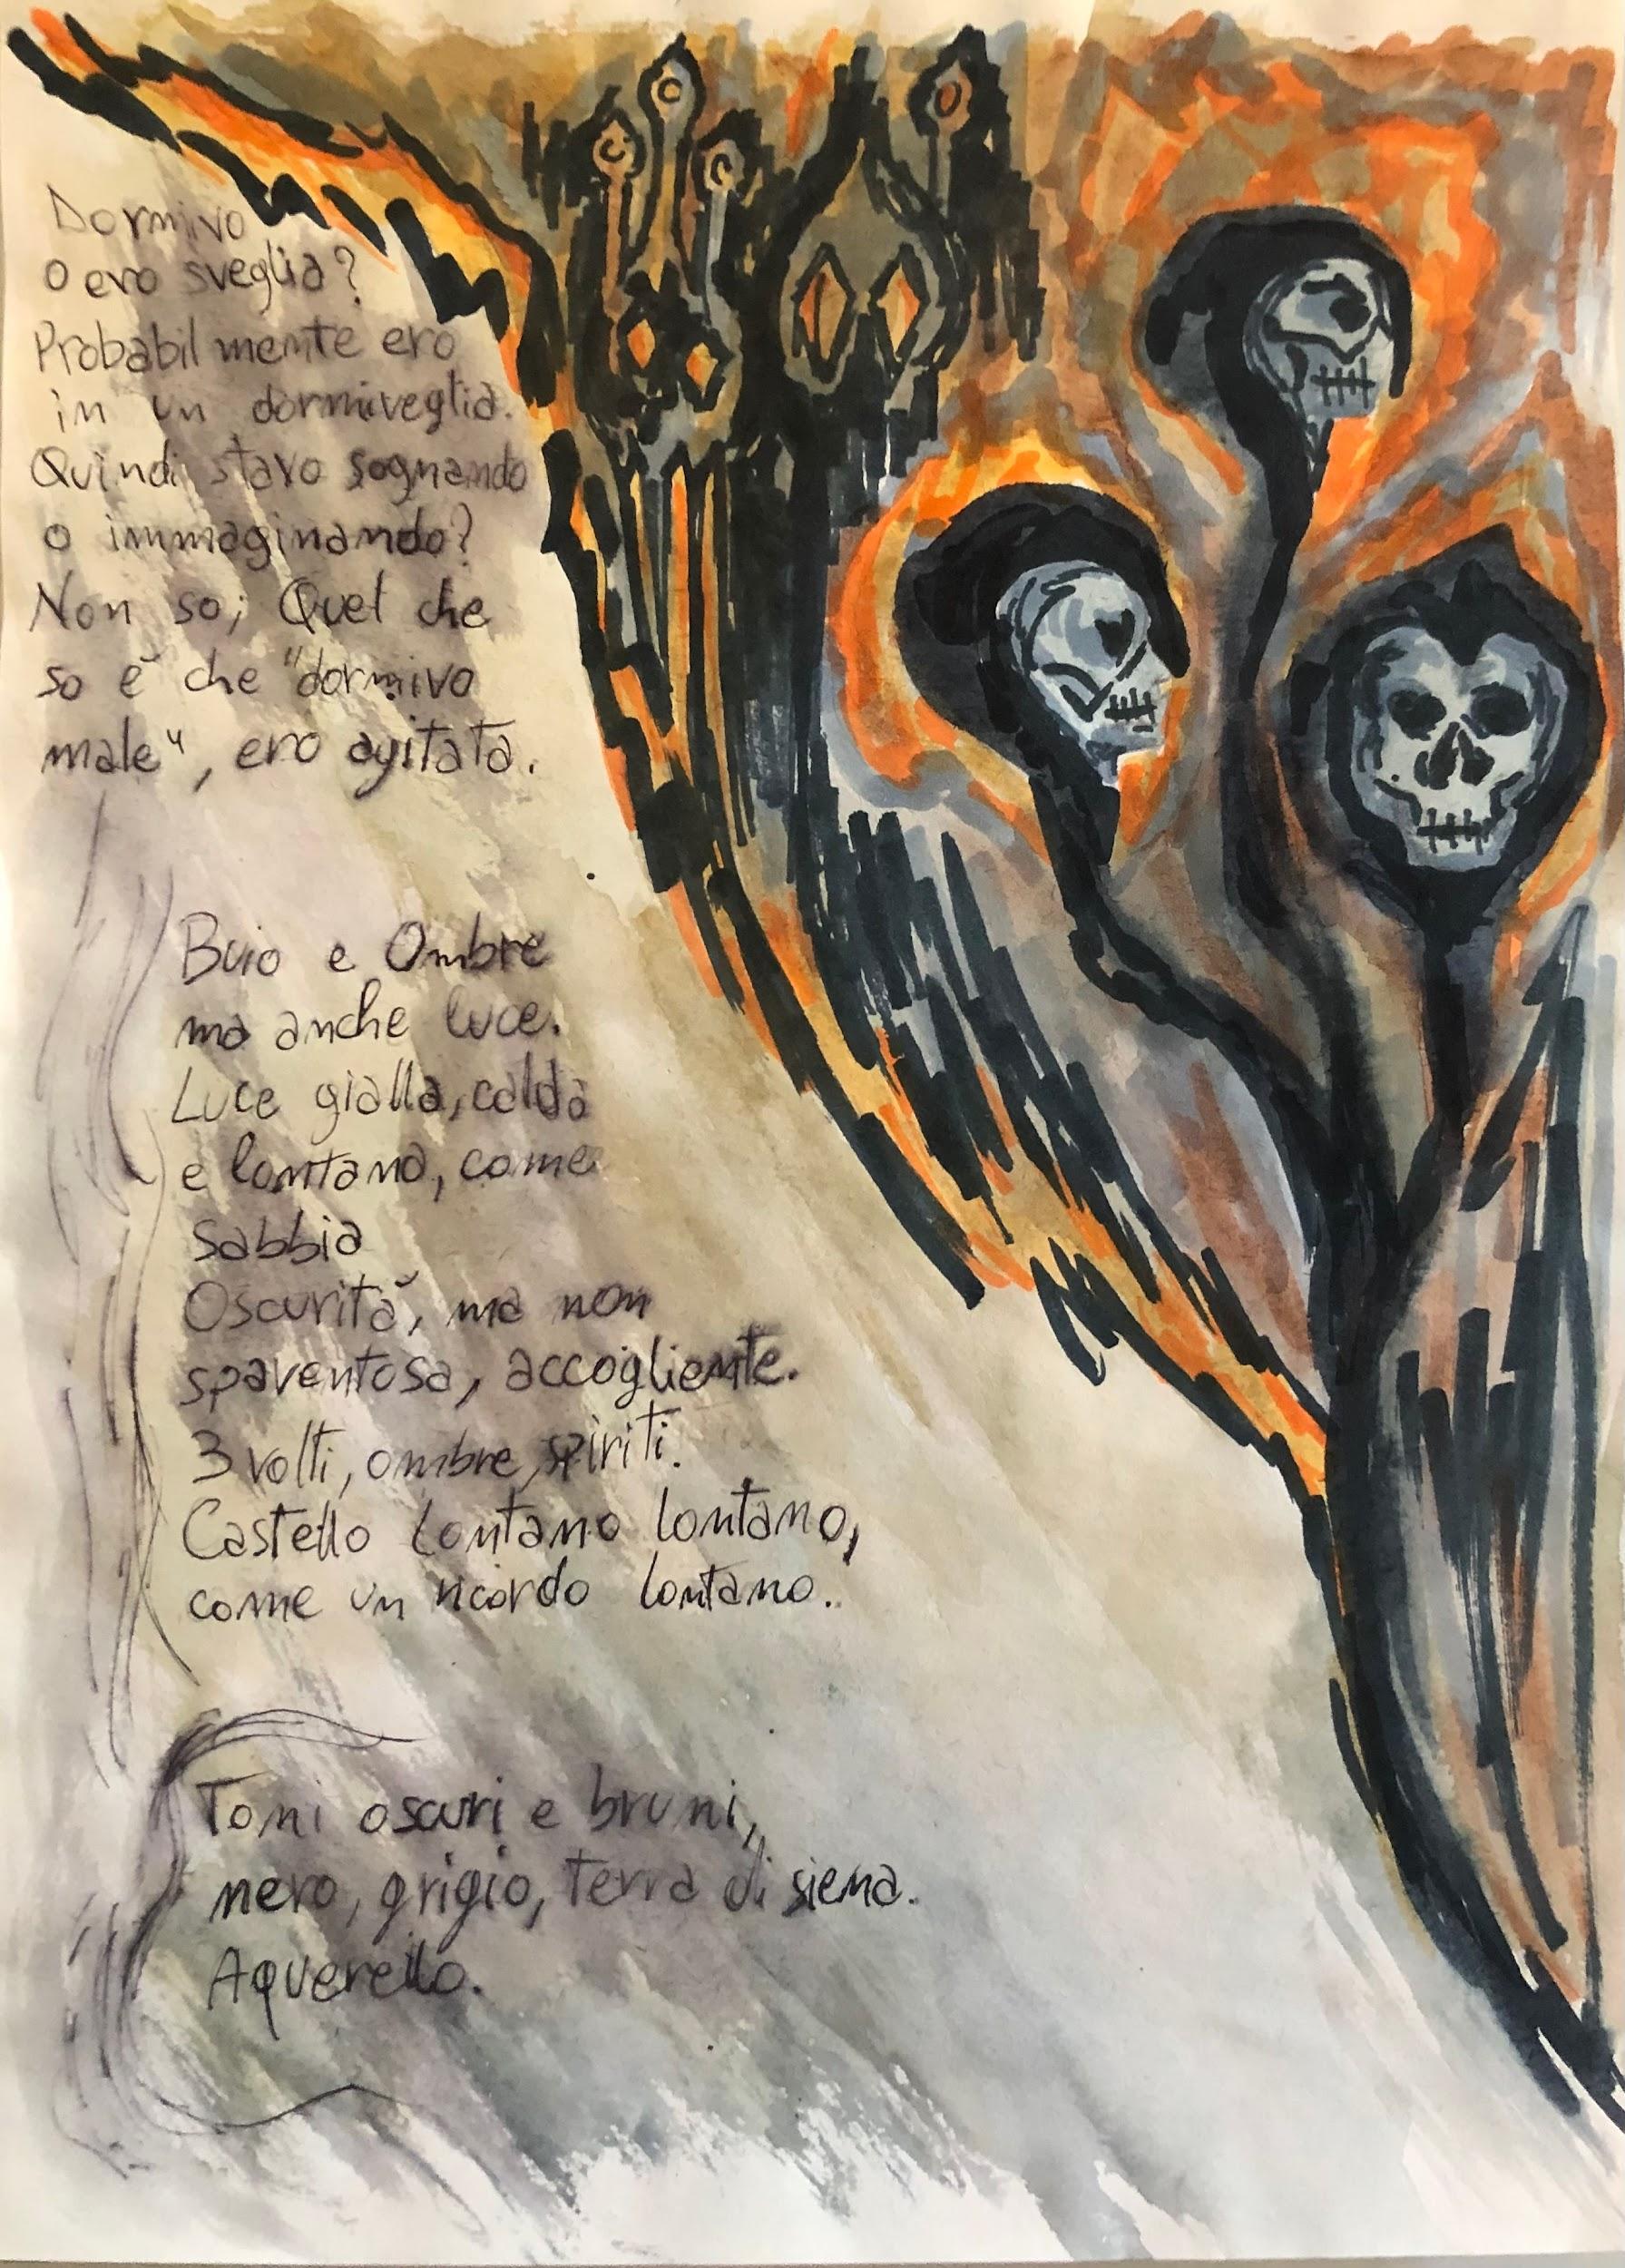 Dormivo
o ero sveglia?
Probabilmente ero
in un dormiveglia.
Quindi stavo sognando
o immaginando?
Non so; Quel che
so è che "dormivo
male", ero agitata.
Buio e Ombre
ma anche luce.
Luce gialla, calda
e lontana, come
sabbia
Oscurità, ma non
spaventosa, accogliente.
3 volti, ombre, spiriti.
Castello lontano lontano,
come un ricordo lontano.
Toni oscuri e bruni,
nero, grigio, terra di siena.
Aquerello.